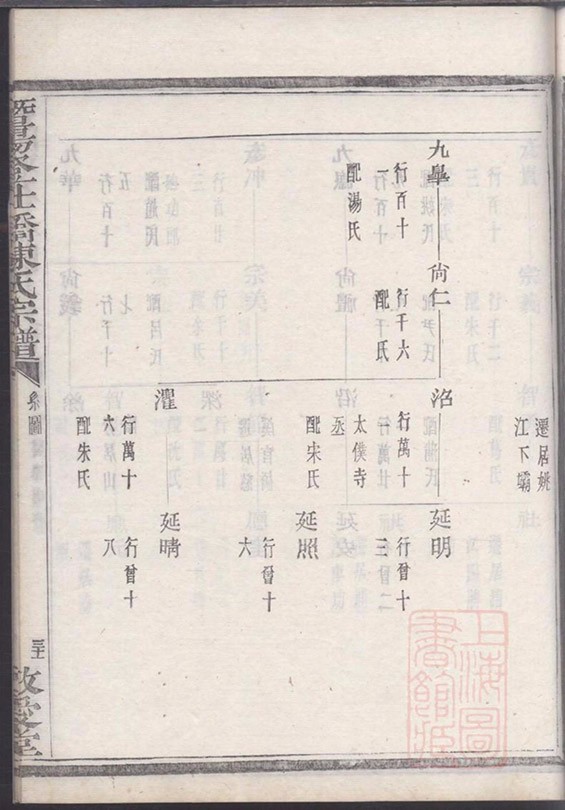 遷居姚
江下壩
九臯
行百十
配湯氏
尚仁
行千六
配于氏
洺
行萬十
一
太僕寺
丞
配宋氏
濯
行萬十
六
配朱氏
延明
行曾十
三
延照
行曾十
六
延晴
行曾十
八
橋陳氏宗譜
系圖
敬愛堂
上海圖
書館藏